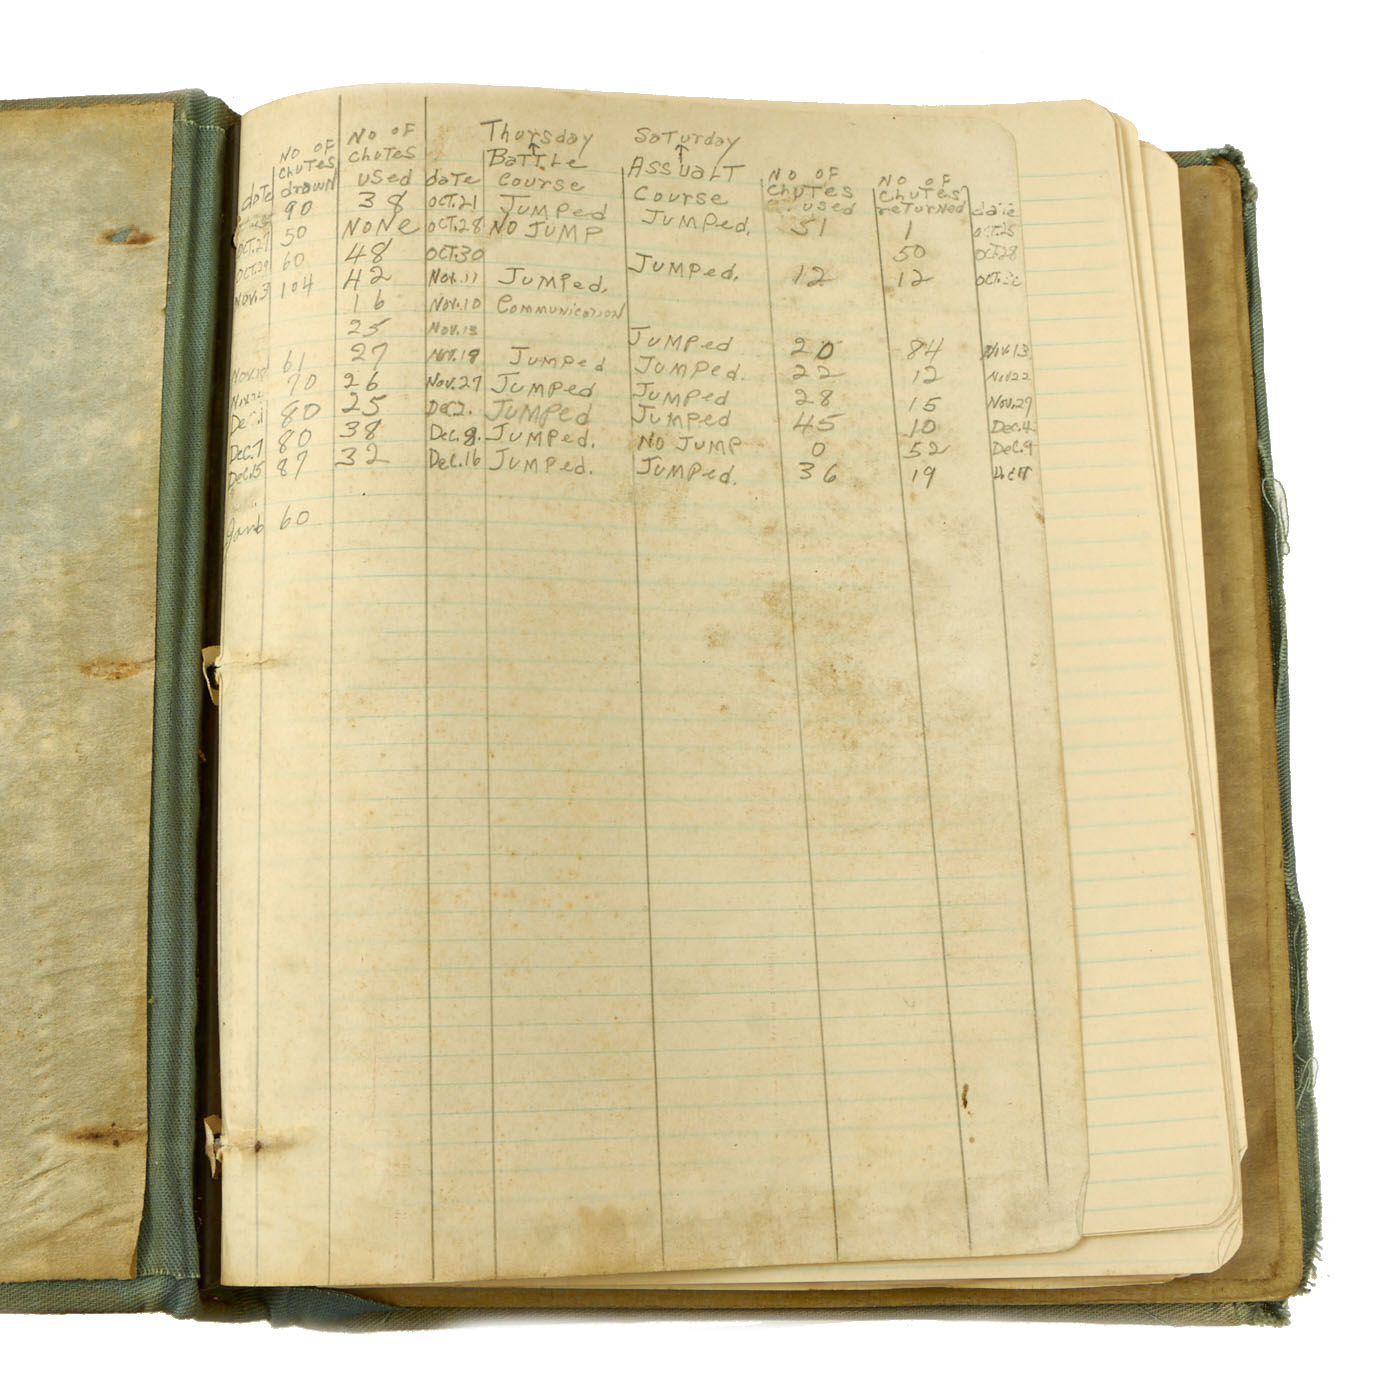 date | No of chutes drawn | No of chutes used | date | Thursday ↑ Battle course | Saturday ↑ Assualt course | No of chutes used | No of chutes returned | date
90 | 38 | Oct.21 | Jumped | Jumped. | 51 | 1 | Oct.25
Oct.27 | 50 | None | Oct.28 | No Jump | | | 50 | Oct.28
Oct.29 | 60 | 48 | Oct.30 | | Jumped. | 12 | 12 | Oct.
Nov.3 | 104 | 42 | Nov.11 | Jumped.
16 | Nov.10 | Communication
25 | Nov.13 | | Jumped | 20 | 84 | Nov.13
61 | 27 | Nov.18 | Jumped | Jumped. | 22 | 12 | Nov.22
70 | 26 | Nov.27 | Jumped | Jumped | 28 | 15 | Nov.29
Dec.1 | 80 | 25 | Dec.2. | Jumped | Jumped | 45 | 10 | Dec.4
Dec.7 | 80 | 38 | Dec.8. | Jumped. | No Jump | 0 | 52 | Dec.9
Dec.15 | 87 | 32 | Dec.16 | Jumped. | Jumped. | 36 | 19
Jan6 | 60